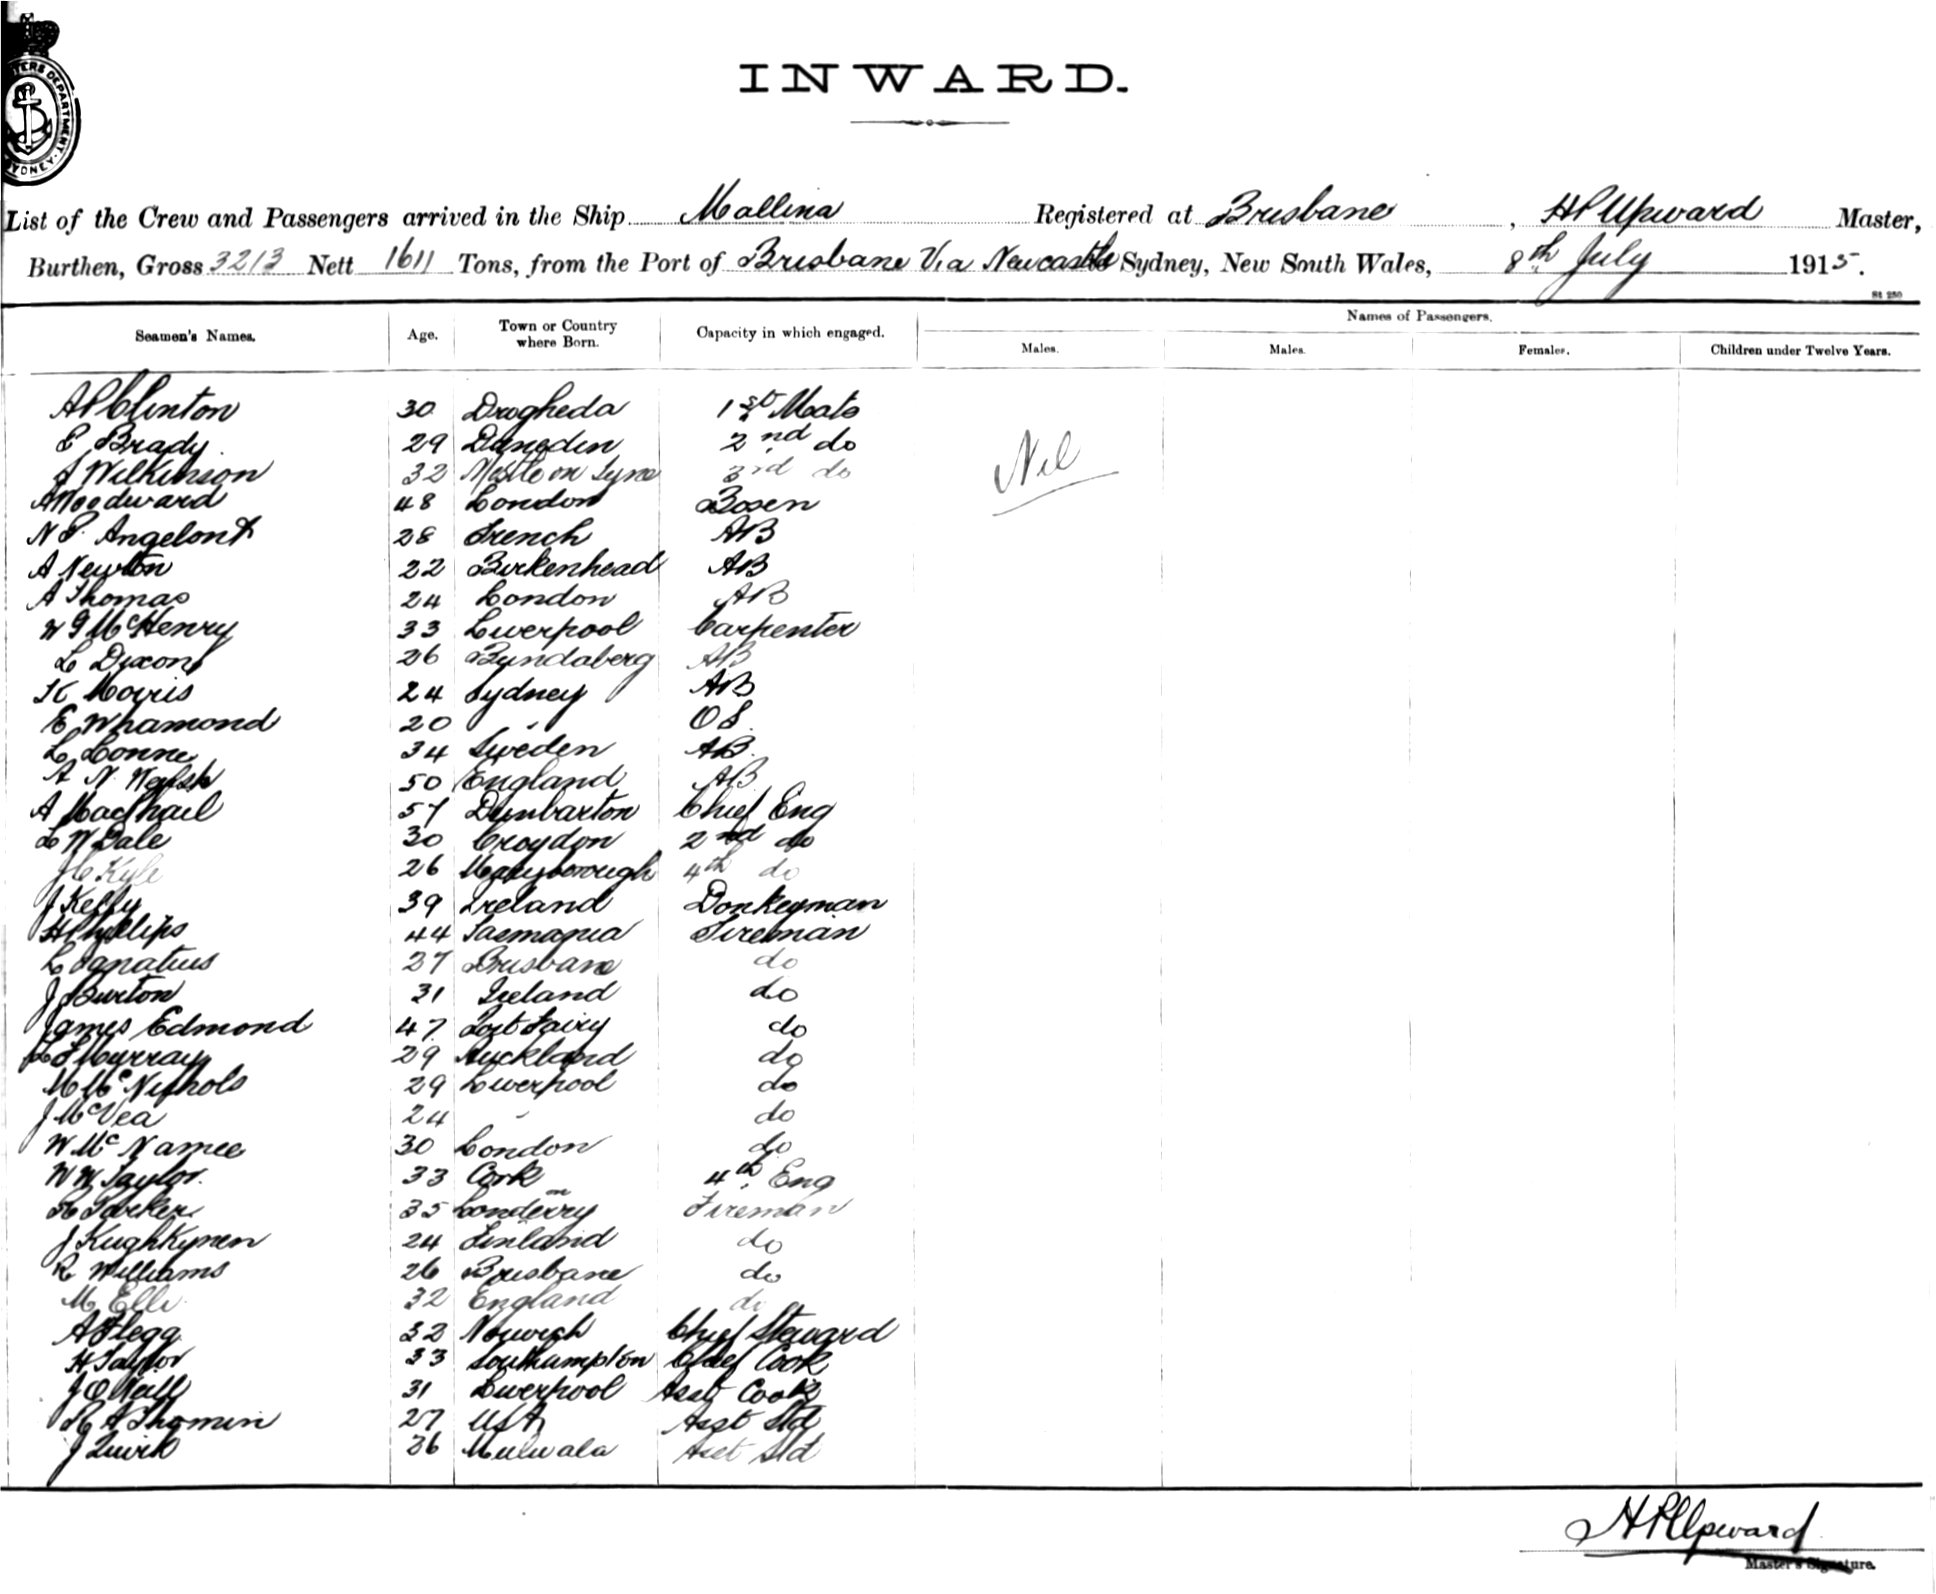 INWARD.
List of the Crew and Passengers arrived in the Ship Mallina Registered at Brisbane, H P Upward Master,
Burthen, Gross 3213 Nett 1611 Tons, from the Port of Brisbane Via Newcastle Sydney, New South Wales, 8th July 1915.
St 250
Seamen's Names. Age. Town or Country where Born. Capacity in which engaged. Names of Passengers.
Males. Males. Females. Children under Twelve Years.
A P Clinton 30 Drogheda 1st Mate
E Brady 29 Dunedin 2nd do
J Wilkinson 32 on Tyne 3rd do
Nil
A Woodward 48 London Bosen
N P. Angelont 28 French AB
A Newton 22 Birkenhead AB
A Thomas 24 London AB
W G McHenry 33 Liverpool Carpenter
L Dixon 26 Bundaberg AB
K Morris 24 Sydney AB
E Whamond 20 " OS
L Lonne 34 Sweden AB.
A N. Walsh 50 England AB
A MacPhail 57 Dunbarton Chief Eng
L W Dale 30 Croydon 2nd do
J C Kyle 26 Maryborough 4th do
J Kelly 39 Ireland Donkeyman
H Phillips 44 Tasmania Fireman
L Ignatius 27 Brisbane do
J Burton 31 Ireland do
James Edmond 47 Port Fairy do
L F Murray 29 Auckland do
M McNichols 29 Liverpool do
J McVea 24 " do
W McNamee 30 London do
W W Taylor. 33 Cork 4th Eng
35 Londerry Fireman
J Kughkynen 24 Finland do
R Williams 26 Brisbane do
M Elli 32 England do
A Flegg 32 Norwich Chief Steward
H Taylor 33 Southampton Chief Cook
J O'Neill 31 Liverpool Asst Cook
R A Thomin 27 USA Asst Std
J Quirk 36 Mulwala Asst Std
H P Upward
Master's Signature.